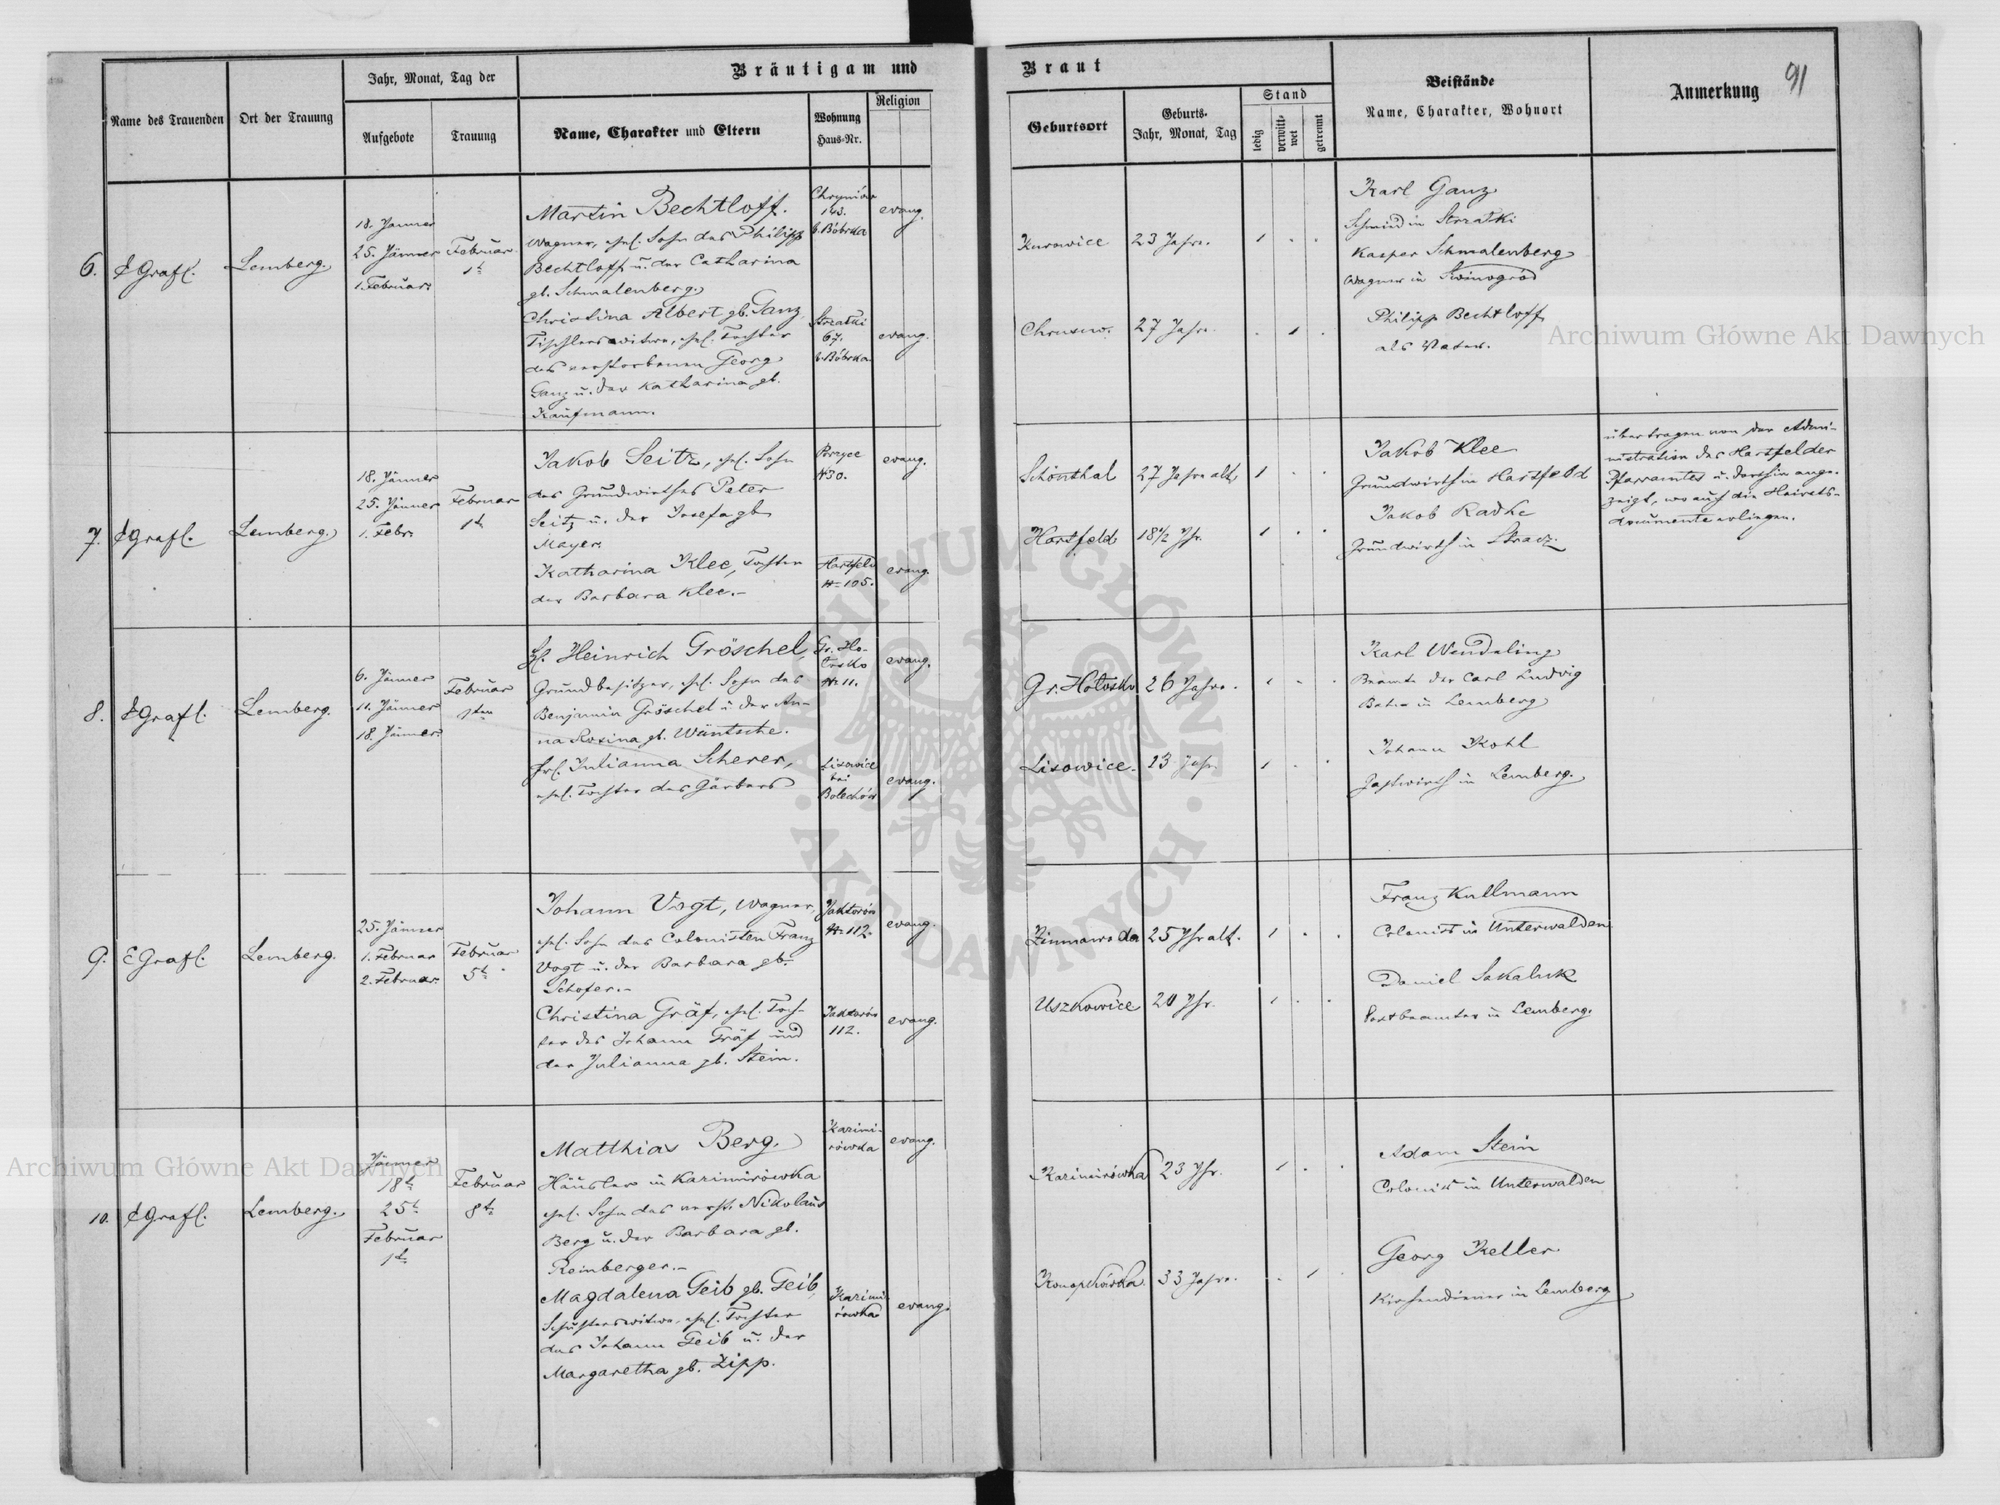 Bräutigam und
Braut
91
Name des Trauenden
Ort der Trauung
Jahr, Monat, Tag der
Aufgebote
Trauung
Name, Charakter und Eltern
Wohnung
Haus-Nr.
Religion
Geburtsort
Geburts-
Jahr, Monat, Tag
Stand
ledig
verwitt-
wet
getrennt
Beistände
Name, Charakter, Wohnort
Anmerkung
6.
Grafl.
Lemberg.
18. Jänner
25. Jänner
1. Februar.
Februar
1t
Martin Bechtloff.
Wagner, ehel. Sohn des Philipp
Bechtloff u. der Catharina
gb. Schmalenberg.
Christina Albert gb. Ganz,
Tischlerswitwe, ehel. Tochter
des verstorbenen Georg
Ganz u. der Katharina gb.
Kaufmann.
143.
b. Bóbrka
Strzałki
67.
b. Bóbrka
evang.
evang.
Kurowice
23 Jahre.
27 Jahre
Karl Ganz
Schmied in Strzałki
Kasper Schmalenberg
Wagner in
Philipp Bechtloff
als Vater.
7.
Grafl.
Lemberg.
18. Jänner
25. Jänner
1. Febr.
Februar
1t
Jakob Seitz, ehel. Sohn
des Grundwirthes Peter
Seitz u. der Josefa gb
Mayer.
Katharina Klee, Tochter
der Barbara Klee.-
N30.
Hartfeld
N= 105.
evang.
evang.
Schönthal
27 Jahre alt,
Hartfeld
18 1/2 Jhr.
Jakob Klee
Grundwirth in Hartfeld
Jakob Radke
Grundwirth in Stradz.
übertragen von der Admi-
nistration des Hartfelder
Pfarramtes u. dorthin ange-
zeigt, wo auch die Heirats-
documente erliegen.
8.
Grafl.
Lemberg.
6. Jänner
11. Jänner
18. Jänner.
Februar
1ten
H. Heinrich Gröschel,
Grundbesitzer, ehel. Sohn des
Benjamin Gröschel u der An-
na Rosina gb. Wüntsche.
Frl. Julianna Scherer,
ehel. Tochter des Gärbers
Gr. Ho-
łosko
N= 11.
Lisowice
bei
Bolechów
evang.
evang.
Gr. Hołosko
26 Jahre.
Lisowice.
23 Jahr.
Karl Wendeling
Beamte der Carl Ludwig
Bahn in Lemberg
Johann Kohl
Gastwirth in Lemberg.
9.
E Grafl.
Lemberg.
25. Jänner
1. Februar
2. Februar.
Februar
5t
Johann Vogt, Wagner,
ehel. Sohn des Colonisten Franz
Vogt u. der Barbara gb.
Schofer.-
Christina Gräf, ehel. Toch-
ter des Johann Gräf und
der Julianna gb. Stein.
Jaktorów
N= 112.
Jaktorów
112.
evang.
evang.
Zimnawoda
25 Jhr alt.
Uszkowice
20 Jhr.
Franz Kullmann
Colonist in Unterwalden
Daniel Sakaluk
Postbeamter in Lemberg.
10.
Grafl.
Lemberg.
Jänner
18t
25t
Februar
1t
Februar
8t
Matthias Berg.
Häusler in Kazimirówka
ehel. Sohn des verst. Nikolaus
Berg u. der Barbara gb.
Reinberger.-
Magdalena Geib gb. Geib,
Schusterswitwe, ehel. Tochter
des Johann Geib u. der
Margaretha gb. Zipp.
Kazimi-
rówka
Kazimi-
rówka
evang.
evang.
Kazimirówka
23 Jhr.
Konopkówka.
33 Jahre.
Adam Stein
Colonist in Unterwalden
Georg Keller
Kirchendiener in Lemberg
Archiwum Główne Akt Dawnych
Archiwum Główne Akt Dawnych
ARCHIWUM GŁÓWNE · AKT DAWNYCH ·